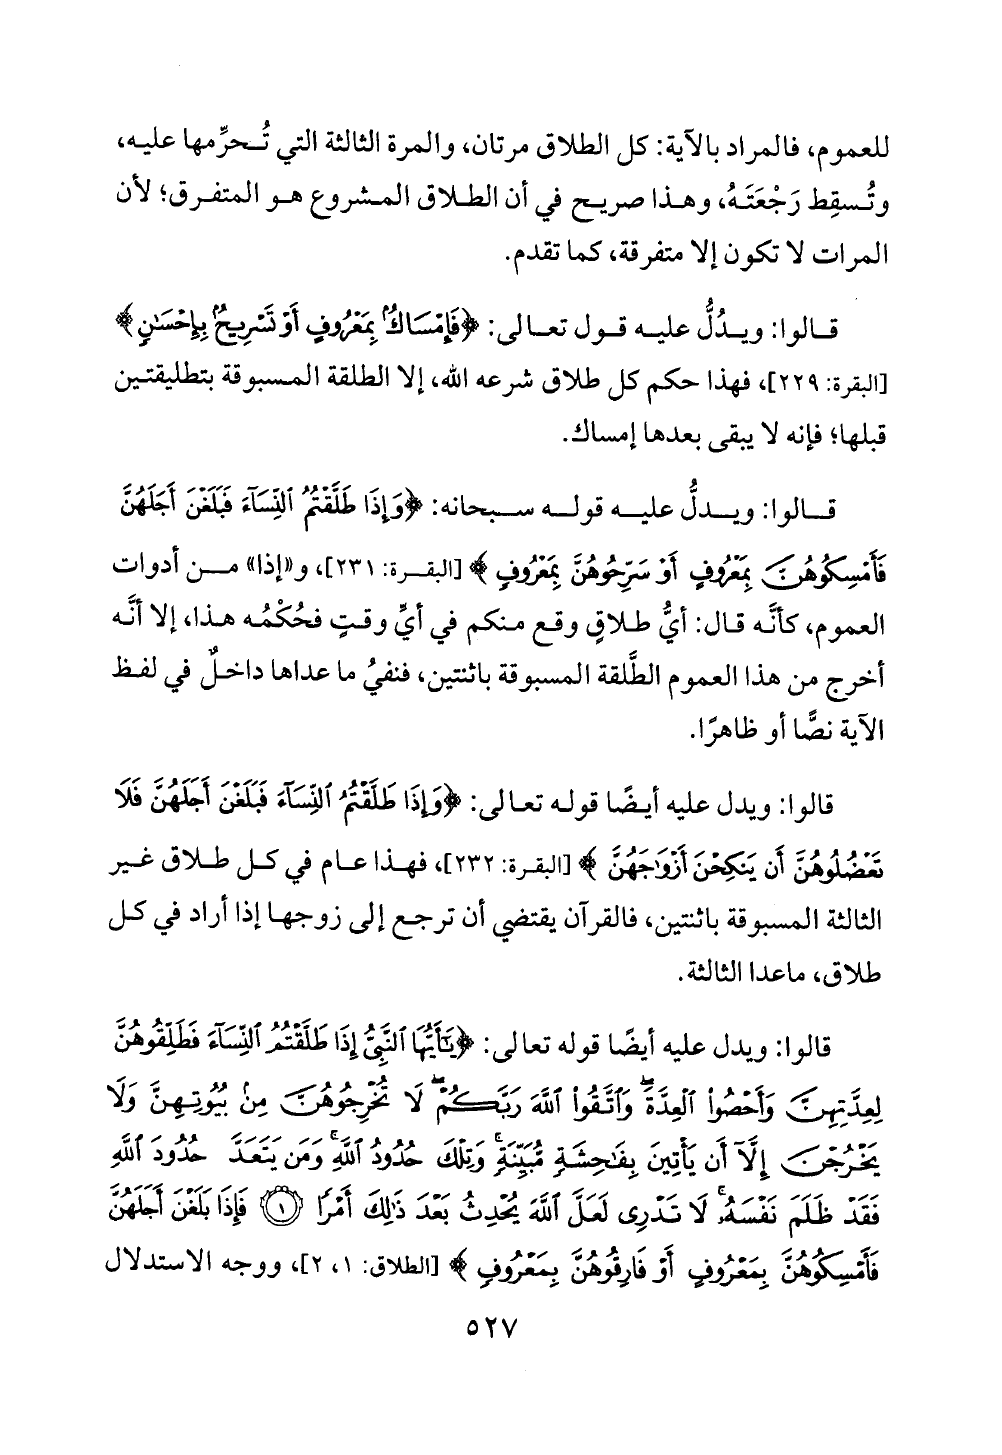 للعموم، فالمراد بالآية: كل الطلاق مرتان، والمرة الثالثة التي تُحرِّمها عليه،
وتُسقِط رَجْعَتَهُ، وهذا صريح في أن الطلاق المشروع هو المتفرق؛ لأن
المرات لا تكون إلا متفرقة، كما تقدم.
قالوا: ويدُلُّ عليه قول تعالى: ﴿فَإِمْسَاكٌۢ بِمَعْرُوفٍ أَوْ تَسْرِيحٌۢ بِإِحْسَٰنٍ﴾
[البقرة: ٢٢٩]، فهذا حكم كل طلاق شرعه الله، إلا الطلقة المسبوقة بتطليقتين
قبلها؛ فإنه لا يبقى بعدها إمساك.
قالوا: ويدلُّ عليه قوله سبحانه: ﴿وَإِذَا طَلَّقْتُمُ ٱلنِّسَآءَ فَبَلَغْنَ أَجَلَهُنَّ
فَأَمْسِكُوهُنَّ بِمَعْرُوفٍ أَوْ سَرِّحُوهُنَّ بِمَعْرُوفٍ﴾ [البقرة: ٢٣١]، و«إذا» من أدوات
العموم، كأنَّه قال: أيُّ طلاقٍ وقع منكم في أيِّ وقتٍ فحُكْمُه هذا، إلا أنَّه
أخرج من هذا العموم الطَّلقة المسبوقة باثنتين، فنفيُ ما عداها داخلٌ في لفظ
الآية نصًّا أو ظاهرًا.
قالوا: ويدل عليه أيضًا قوله تعالى: ﴿وَإِذَا طَلَّقْتُمُ ٱلنِّسَآءَ فَبَلَغْنَ أَجَلَهُنَّ فَلَا
تَعْضُلُوهُنَّ أَن يَنكِحْنَ أَزْوَٰجَهُنَّ﴾ [البقرة: ٢٣٢]، فهذا عام في كل طلاق غير
الثالثة المسبوقة باثنتين، فالقرآن يقتضي أن ترجع إلى زوجها إذا أراد في كل
طلاق، ماعدا الثالثة.
قالوا: ويدل عليه أيضًا قوله تعالى: ﴿يَٰٓأَيُّهَا ٱلنَّبِىُّ إِذَا طَلَّقْتُمُ ٱلنِّسَآءَ فَطَلِّقُوهُنَّ
لِعِدَّتِهِنَّ وَأَحْصُوا۟ ٱلْعِدَّةَ ۖ وَٱتَّقُوا۟ ٱللَّهَ رَبَّكُمْ ۖ لَا تُخْرِجُوهُنَّ مِنۢ بُيُوتِهِنَّ وَلَا
يَخْرُجْنَ إِلَّآ أَن يَأْتِينَ بِفَٰحِشَةٍ مُّبَيِّنَةٍ ۚ وَتِلْكَ حُدُودُ ٱللَّهِ ۚ وَمَن يَتَعَدَّ حُدُودَ ٱللَّهِ
فَقَدْ ظَلَمَ نَفْسَهُۥ ۚ لَا تَدْرِى لَعَلَّ ٱللَّهَ يُحْدِثُ بَعْدَ ذَٰلِكَ أَمْرًا ۝١ فَإِذَا بَلَغْنَ أَجَلَهُنَّ
فَأَمْسِكُوهُنَّ بِمَعْرُوفٍ أَوْ فَارِقُوهُنَّ بِمَعْرُوفٍ﴾ [الطلاق: ١، ٢]، ووجه الاستدلال
٥٢٧